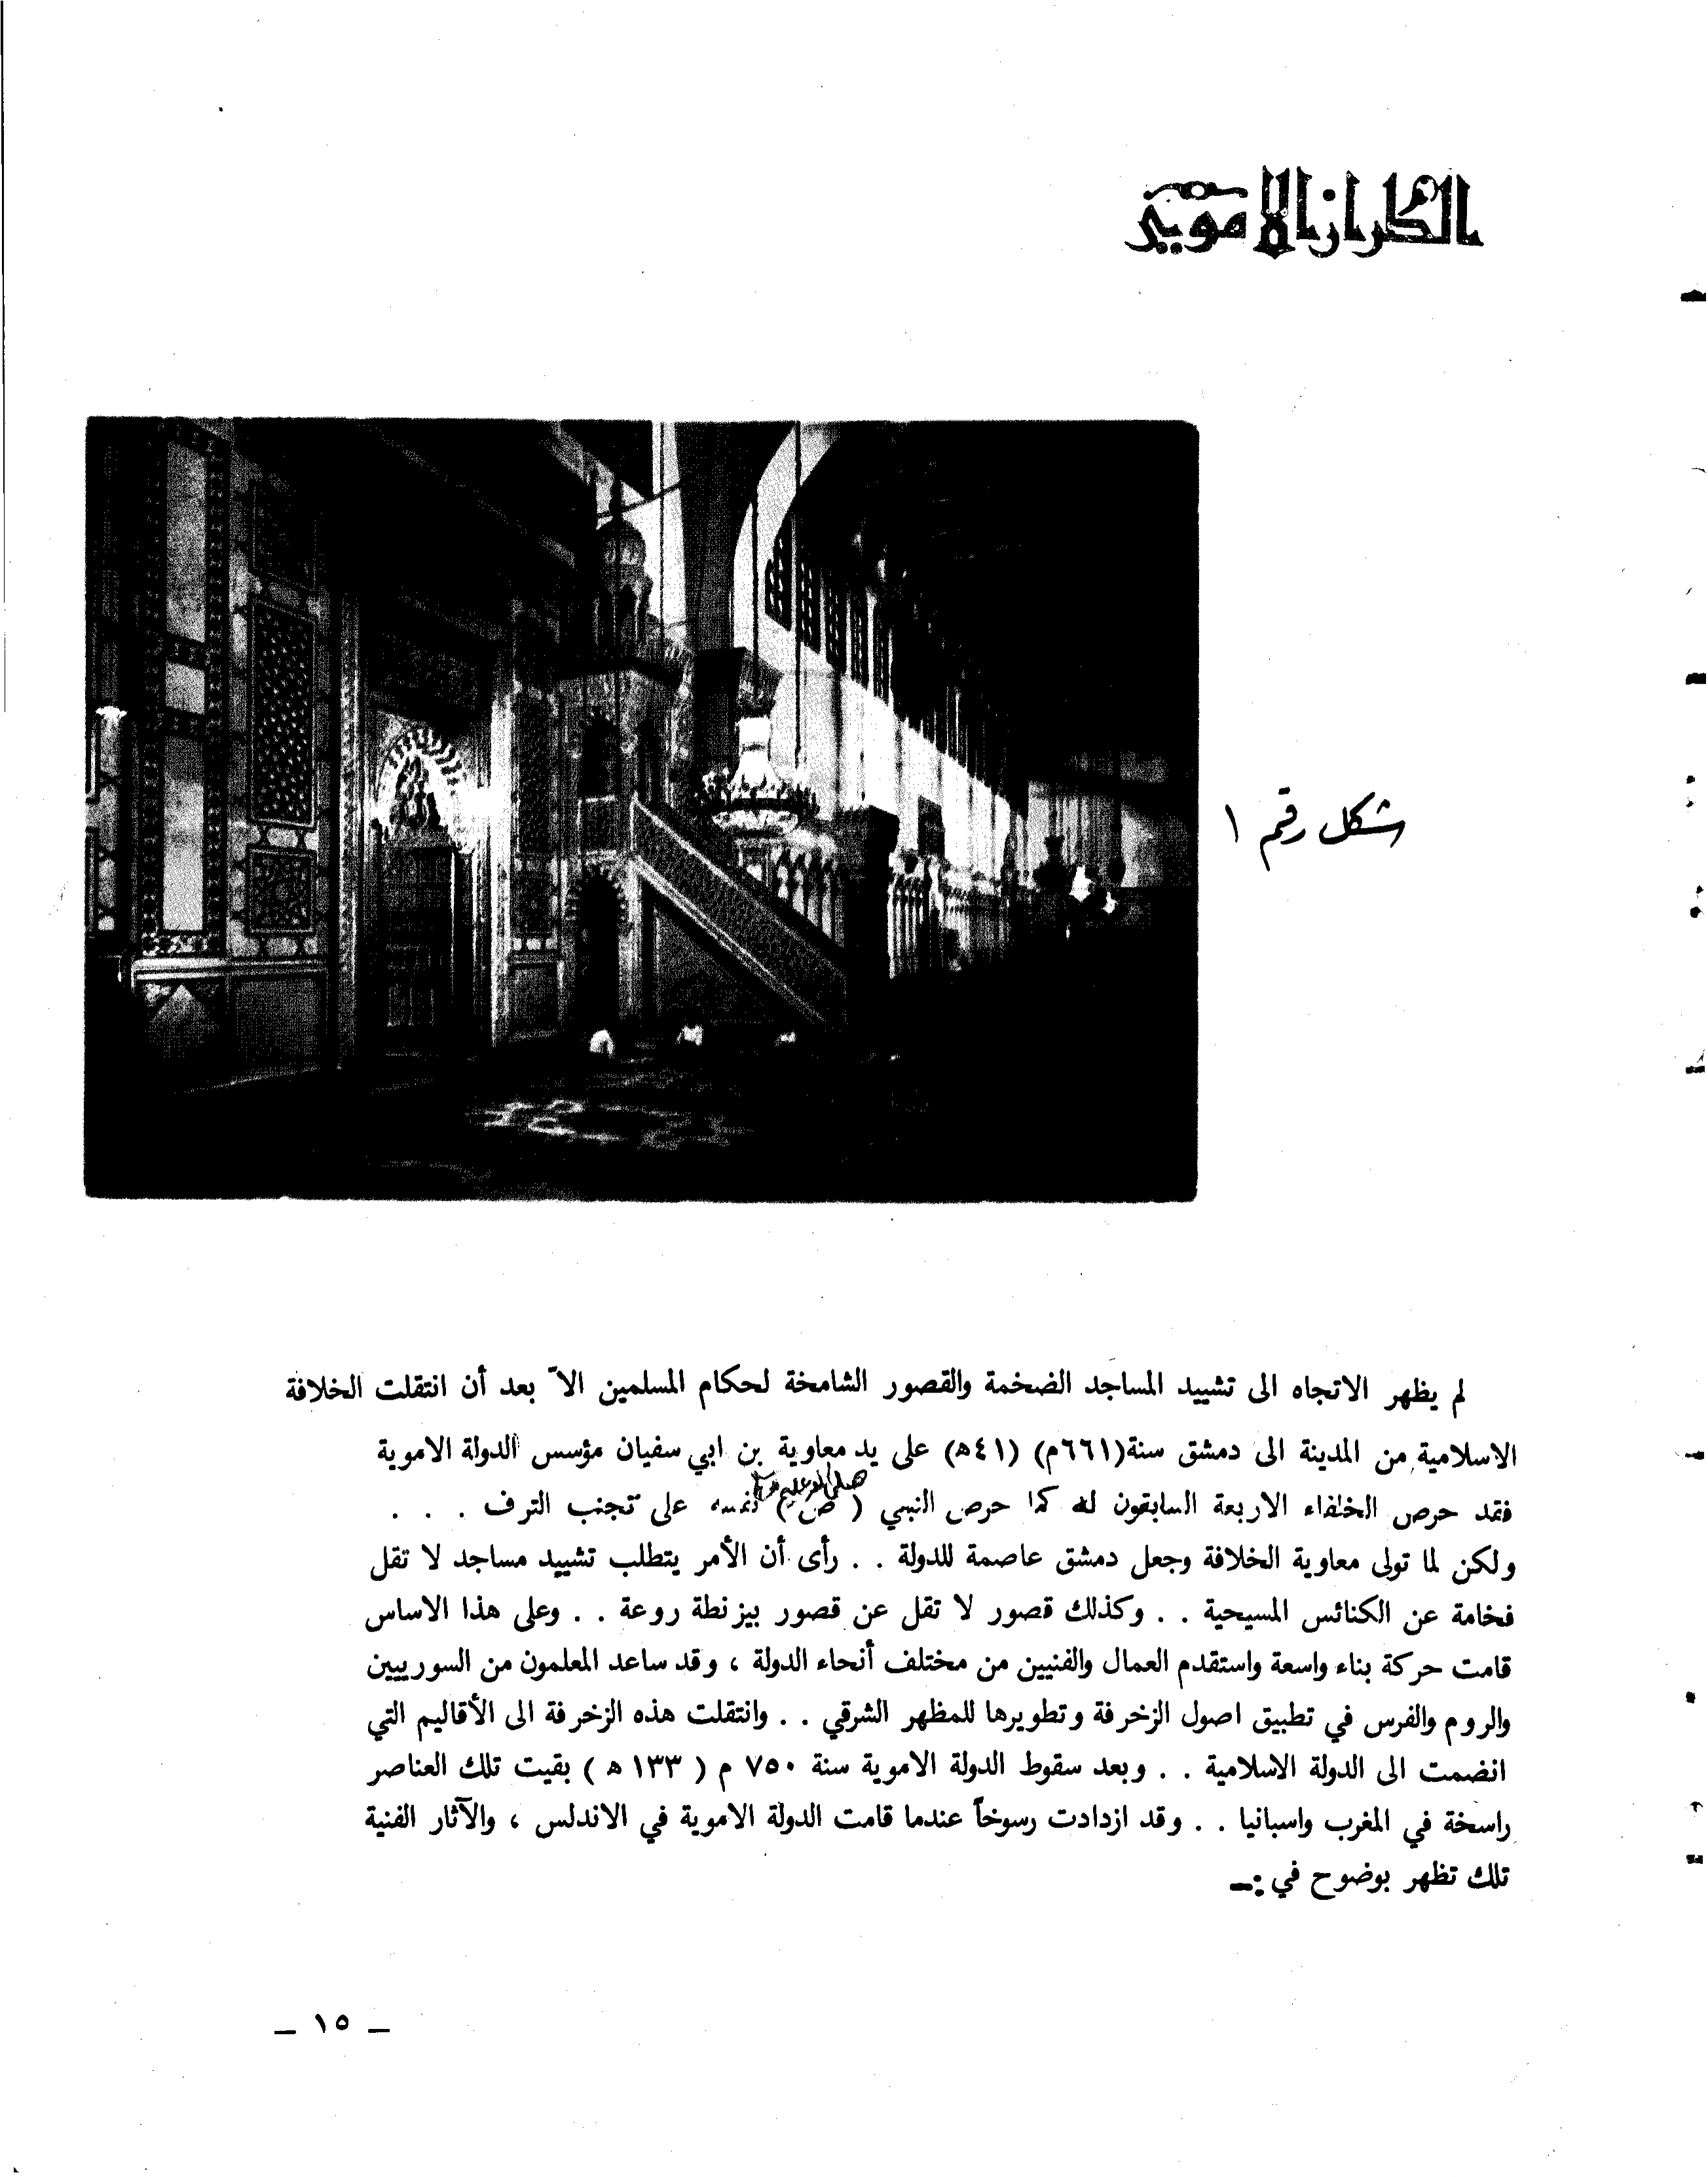 الطراز الاموي
شكل رقم ١
لم يظهر الاتجاه الى تشييد المساجد الضخمة والقصور الشامخة لحكام المسلمين الاّ بعد أن انتقلت الخلافة
الاسلامية من المدينة الى دمشق سنة (٦٦١م) (٤١ه) على يد معاوية بن ابي سفيان مؤسس الدولة الاموية
صلى الله عليه وسلم
فقد حرص الخلفاء الاربعة السابقون له كما حرص النبي ( ص ) نفسه على تجنب الترف . . .
ولكن لما تولى معاوية الخلافة وجعل دمشق عاصمة للدولة . . رأى أن الأمر يتطلب تشييد مساجد لا تقل
فخامة عن الكنائس المسيحية . . وكذلك قصور لا تقل عن قصور بيزنطة روعة . . وعلى هذا الاساس
قامت حركة بناء واسعة واستقدم العمال والفنيين من مختلف أنحاء الدولة ، وقد ساعد المعلمون من السوريين
والروم والفرس في تطبيق اصول الزخرفة وتطويرها للمظهر الشرقي . . وانتقلت هذه الزخرفة الى الأقاليم التي
انضمت الى الدولة الاسلامية . . وبعد سقوط الدولة الاموية سنة ٧٥٠ م ( ١٣٣ ه ) بقيت تلك العناصر
راسخة في المغرب واسبانيا . . وقد ازدادت رسوخاً عندما قامت الدولة الاموية في الاندلس ، والآثار الفنية
تلك تظهر بوضوح في :ــ
ــ ١٥ ــ